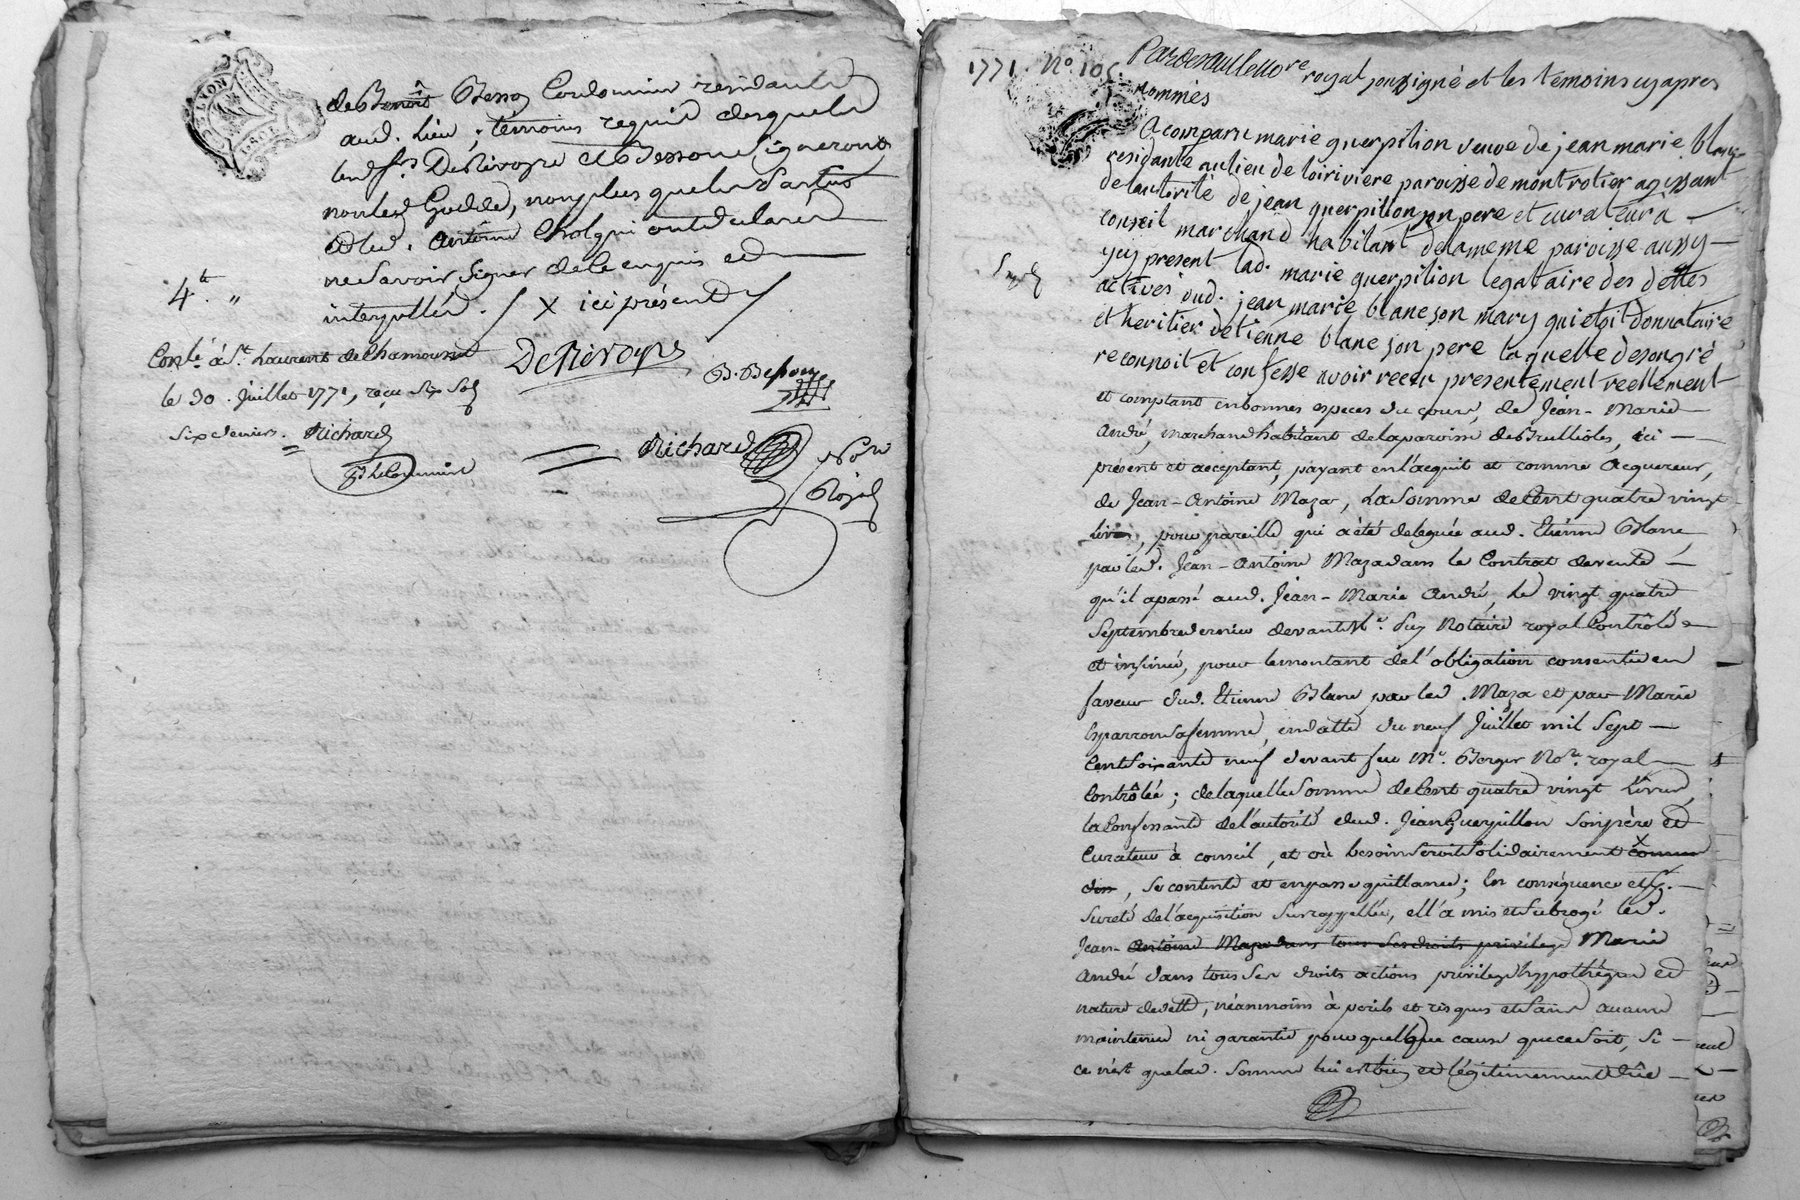 de Benoit Besson Cordonnier résidants
aud. Lieu, témoins requis desquels
lesd. srs Derivoyre et Besson Signeront
non led. Godde, non plus que les d'artus
et led. Antoine Cholqui ont déclaré
ne Savoir Signer de ce enquis et
interpellés. / X ici présent /
4t. "
Conlé à St. Laurent de Chamousset
le 30 Juillet 1771, reçu Six Sols
Six deniers. Richard
DeRivoyre
B. Besson
Richard
Nore
Royal
LYON
1771 No 105
Pardevant le nore royal soussigné et les temoins cy apres
nommés
A comparu marie guerpillon veuve de jean marie blanc
residante au lieu de loiriviere paroisse de montrotier agissant
de lautorité de jean guerpillon son pere et curateur a
conseil marchand habitant de la meme paroisse aussy
ycy present lad. marie guerpilion legataire des dettes
actives dud. jean marie blanc son mary qui etoit donnataire
et heritier detienne blanc son pere laquelle de son gré
reconnoit et confesse avoir receu presentement reellement
et comptant en bonnes especes du cours, de Jean-Marie
André, marchand habitant de la paroisse de Brullioles, ici
présent et acceptant, payant en l'acquit et comme acquereur,
de Jean-Antoine Maza, la somme de Cent quatre vingt
livres, pour pareille qui a été deleguée aud. Etienne Blanc,
par led. Jean-Antoine Maza dans le Contrat de vente
qu'il a passé aud. Jean-Marie André, le vingt quatre
Septembre dernier devant Me. Puy Notaire royal Contrôlé
et insinué, pour le montant de l'obligation consentie en
faveur dud. Etienne Blanc, par led. Maza et par Marie
Esparron sa femme, en datte du neuf Juillet mil Sept
Cent Soixante neuf devant feu Me. Berger Nore. royal
Contrôlée; de laquelle Somme de Cent quatre vingt Livres,
la Confessante de l'autorité dud. Jean Guerpillon son père et
Curateur à conseil, et où besoin Seroit Solidairement comme
dessus, se contente et en passe quittance; En conséquence et pr.
Sureté de l'acquisition Susrappellée, ell'a mis et Subrogé led.
Jean-Antoine Maza dans tous Ses droits privilege Marie
André dans tous Ses droits actions privilege hypothéque et
nature de dette, néanmoins à perils et risques et Sans aucune
maintenue ni garantie pour quelque cause que ce Soit, Si
ce n'est que lad. Somme lui est bien et légitimement Dûe